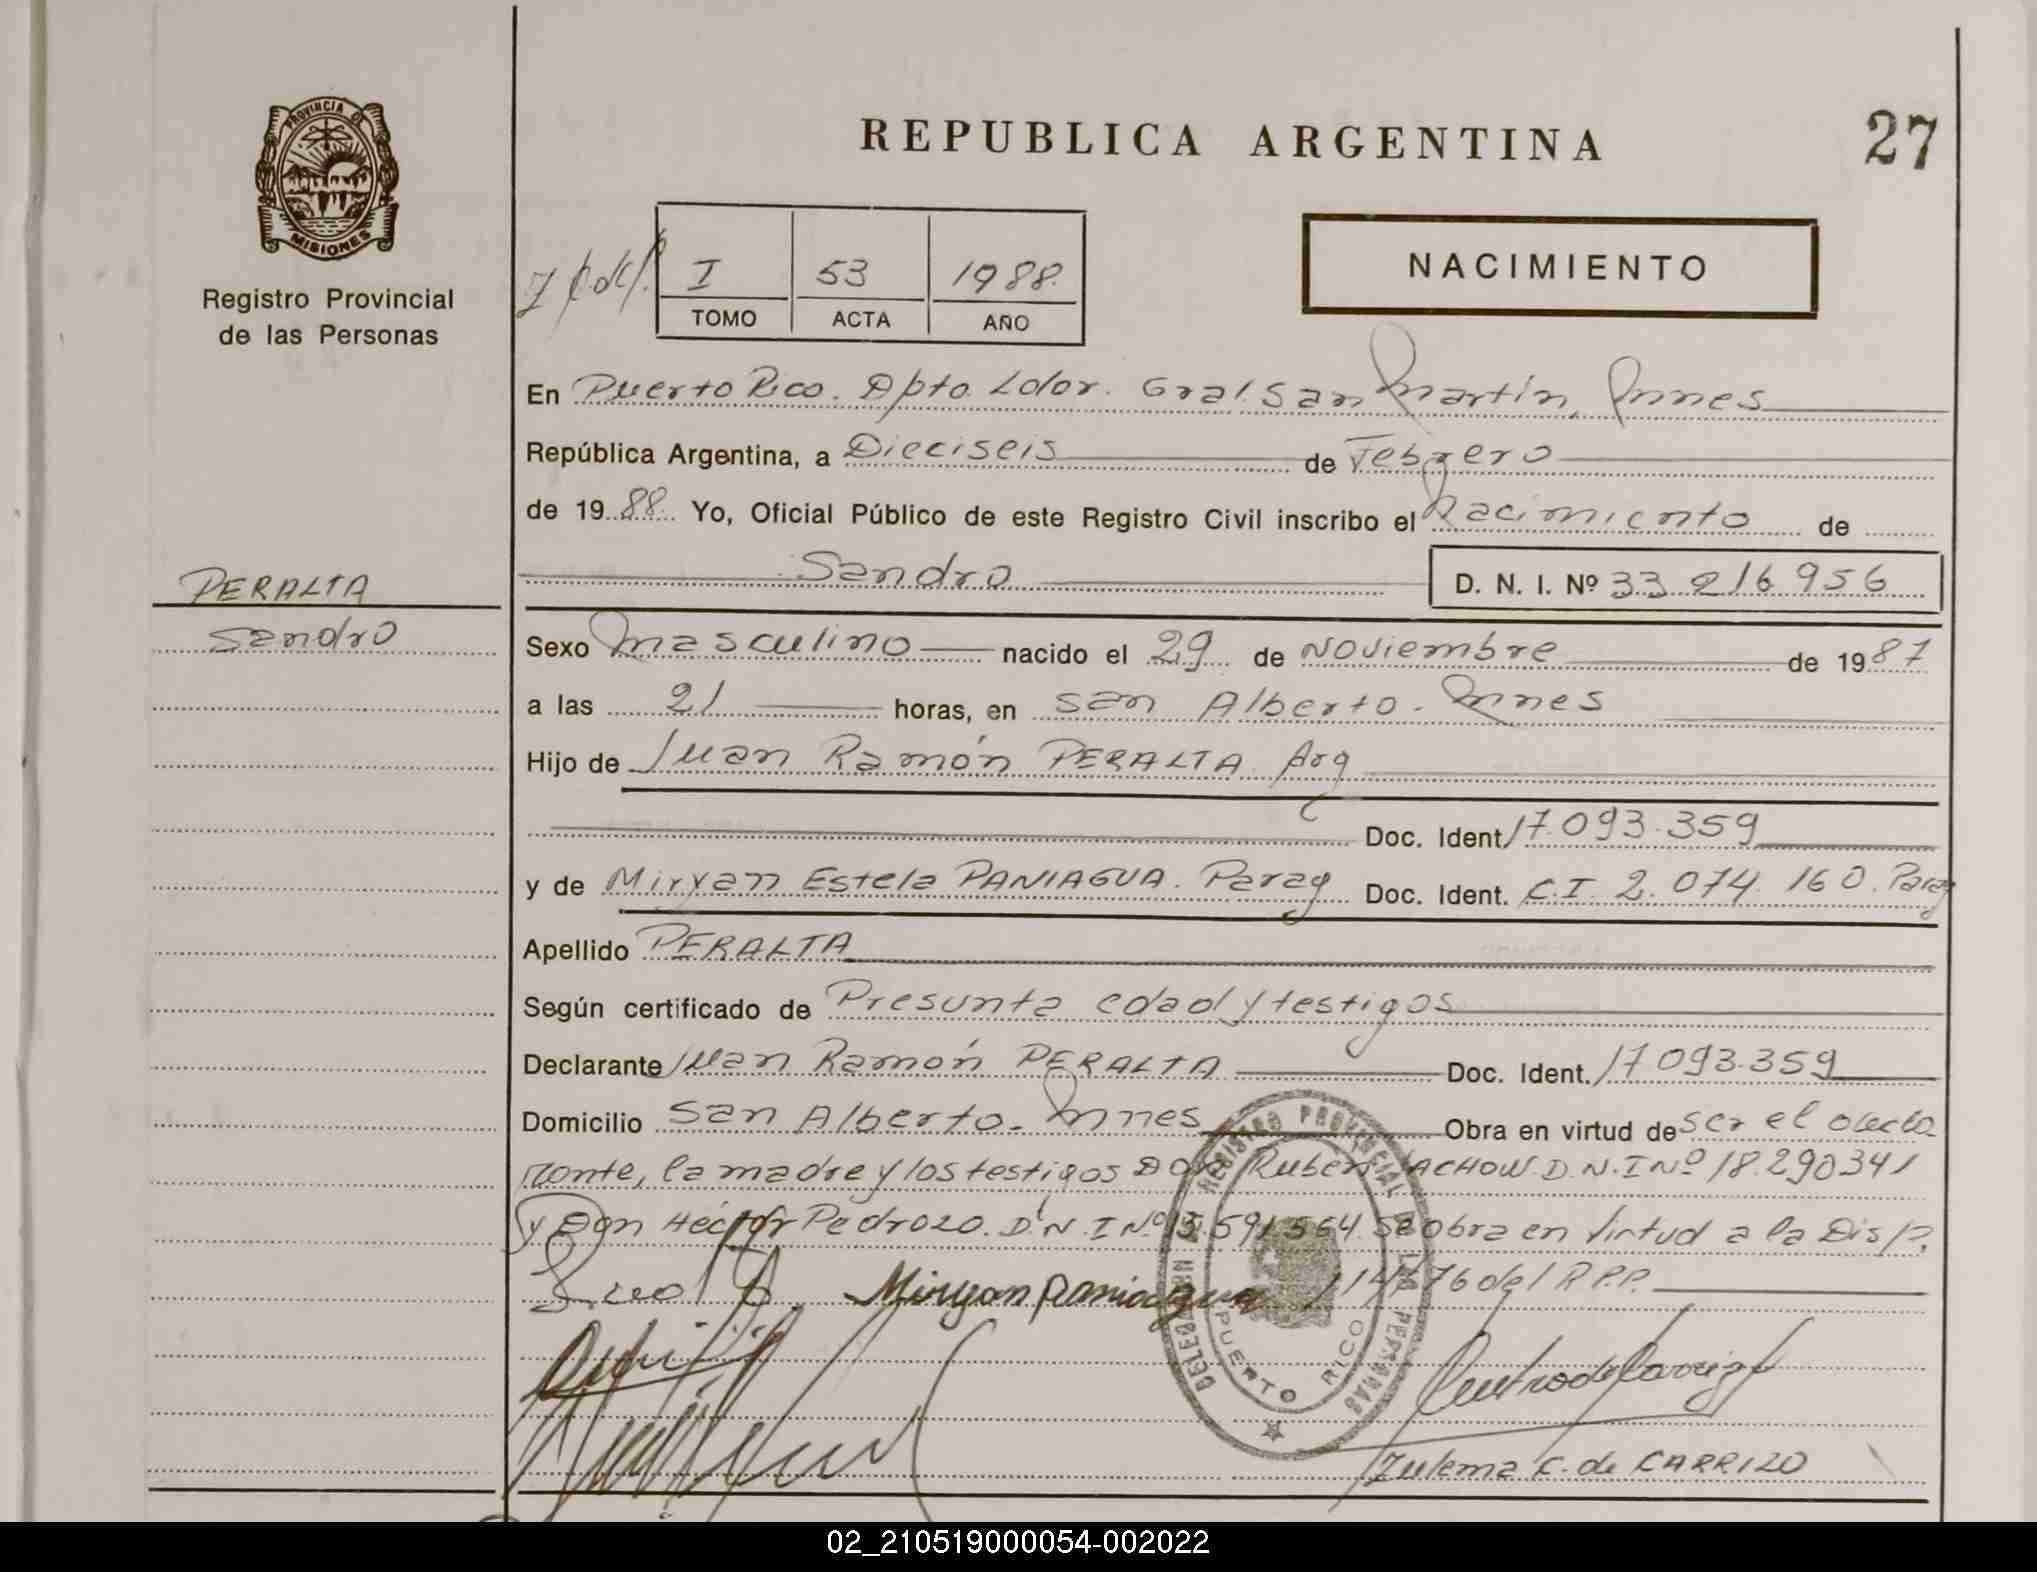 PROVINCIA DE
MISIONES
Registro Provincial
de las Personas
REPUBLICA ARGENTINA
27
I 53 1988
TOMO ACTA AÑO
NACIMIENTO
En Puerto Rico. Dpto. Ldor. Gral. San Martín, Mnes
República Argentina, a Dieciseis de Febrero
de 1988. Yo, Oficial Público de este Registro Civil inscribo el Nacimiento de
Sandro D. N. I. Nº 33 216 956
PERALTA
Sandro
Sexo Masculino nacido el 29 de Noviembre de 1987
a las 21 horas, en San Alberto - Mnes
Hijo de Juan Ramón PERALTA Arg
Doc. Ident 17.093.359
y de Miryan Estela PANIAGUA. Parag Doc. Ident. C.I 2.074.160. Parag
Apellido PERALTA
Según certificado de Presunta edad y testigos
Declarante Juan Ramón PERALTA Doc. Ident. 17.093.359
Domicilio San Alberto - Mnes Obra en virtud de ser el decla
rante, la madre y los testigos Don Ruben ACHOW. D.N.I Nº 18.290341
y Don Héctor Pedrozo. D.N.I Nº 591564. Se obra en Virtud a la Disp.
Miryan Paniagua 114/76 del R.P.P.
REGISTRO PROVINCIAL DE LAS PERSONAS
DELEGACION
PUERTO RICO
Zulema C. de CARRIZO
02_210519000054-002022